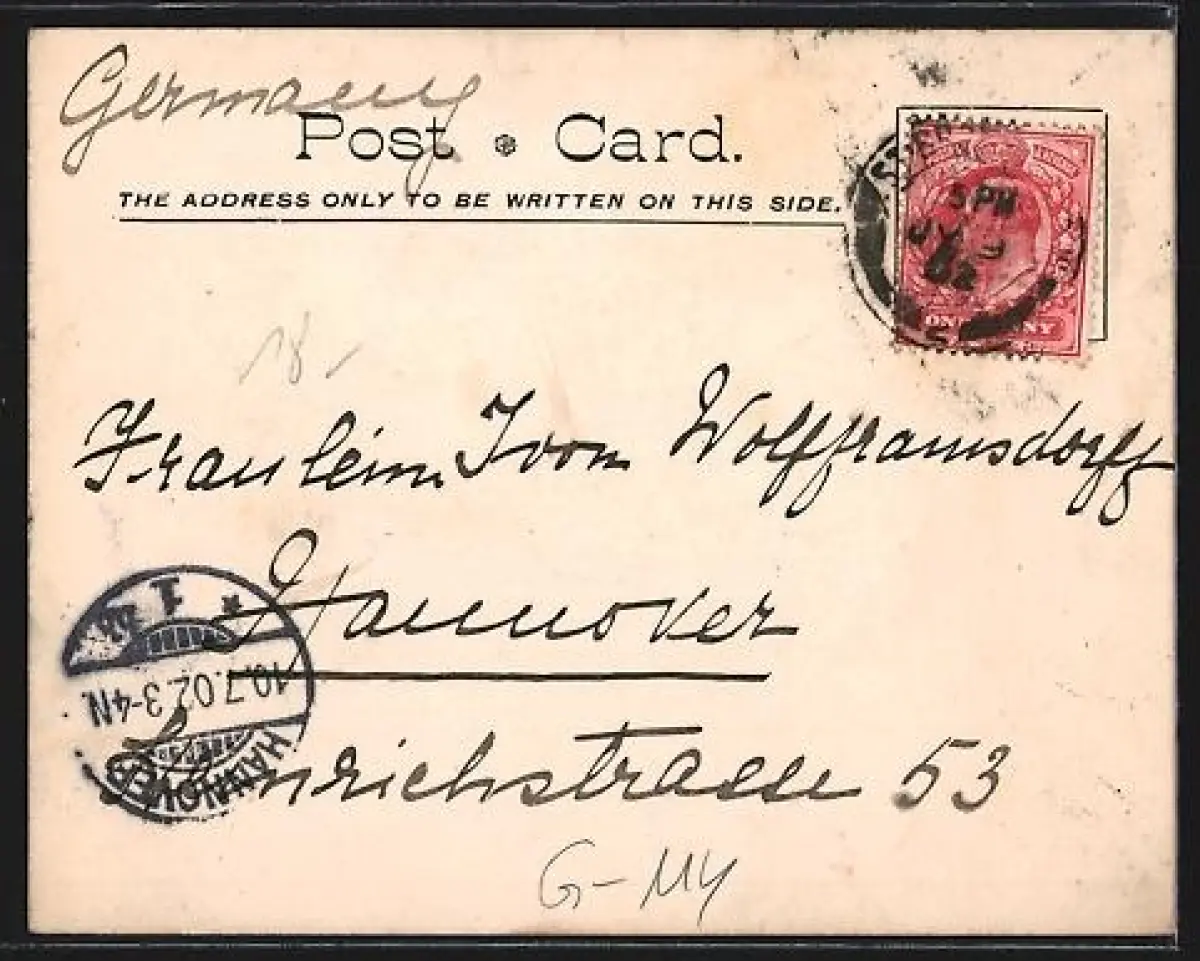 Germany
Post Card.
THE ADDRESS ONLY TO BE WRITTEN ON THIS SIDE.
5 PM
JY 9
02
ONE PENNY
18
Fräulein I von Wolfframsdorff
Hannover
Heinrichstrasse 53
HANNOVER
10.7.02. 3-4N.
1
G-MY